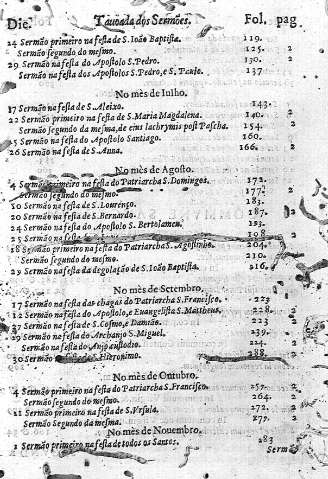 Die. Tauoada dos Sermões. Fol. pag
24 Sermão primeiro na festa de S. Ioão Baptista. 119.
Sermão segundo do mesmo. 125. 2
29 Sermão na festa do Apostolo S. Pedro. 130. 2
Sermão na festa dos Apostolos S. Pedro, e S. Paulo. 137
No mès de Iulho.
17 Sermão na festa de S. Aleixo. 143.
22 Sermão primeiro na festa de S. Maria Magdalena. 140. 2
Sermão segundo da mesma, de eius lachrymis post Pascha. 154. 2
25 Sermão na festa do Apostolo Santiago. 160.
26 Sermão na festa de S. Anna. 166. 2
No mès de Agosto.
4 Sermão primeiro na festa do Patriarcha S. Domingos. 172.
Sermão segundo do mesmo. 177. 2
10 Sermão na festa de S. Lourenço. 183.
20 Sermão na festa de S. Bernardo. 187. 2
24 Sermão na festa do Apostolo S. Bertolameu. 193.
Sermão na festa 198 2
28 Sermão primeiro na festa do Patriarcha S. Agostinho. 204.
Sermão segundo do mesmo. 210. 2
29 Sermão na festa da degolação de S. Ioão Baptista. 216.
No mès de Setembro.
17 Sermão na festa das chagas do Patriarcha S. Francisco. 223
Sermão na festa do Apostolo, e Euangelista S. Mattheus. 228. 2
27 Sermão na festa de S. Cosmo, e Damião. 223 2
29 Sermão na festa do Archanjo S. Miguel. 239.
Sermão na festa do Anjo custodio. 224.
30 Sermão na festa de S. Hieronimo. 288.
No mès de Outubro.
4 Sermão primeiro na festa do Patriarcha S. Francisco. 257. 2
Sermão segundo do mesmo. 264.
21 Sermão primeiro na festa de S. Vrsula. 272. 2
Sermão Segundo da mesma. 277. 2
No mès de Nouembro.
1 Sermão primeiro na festa de todos os Santos. 283
Sermão